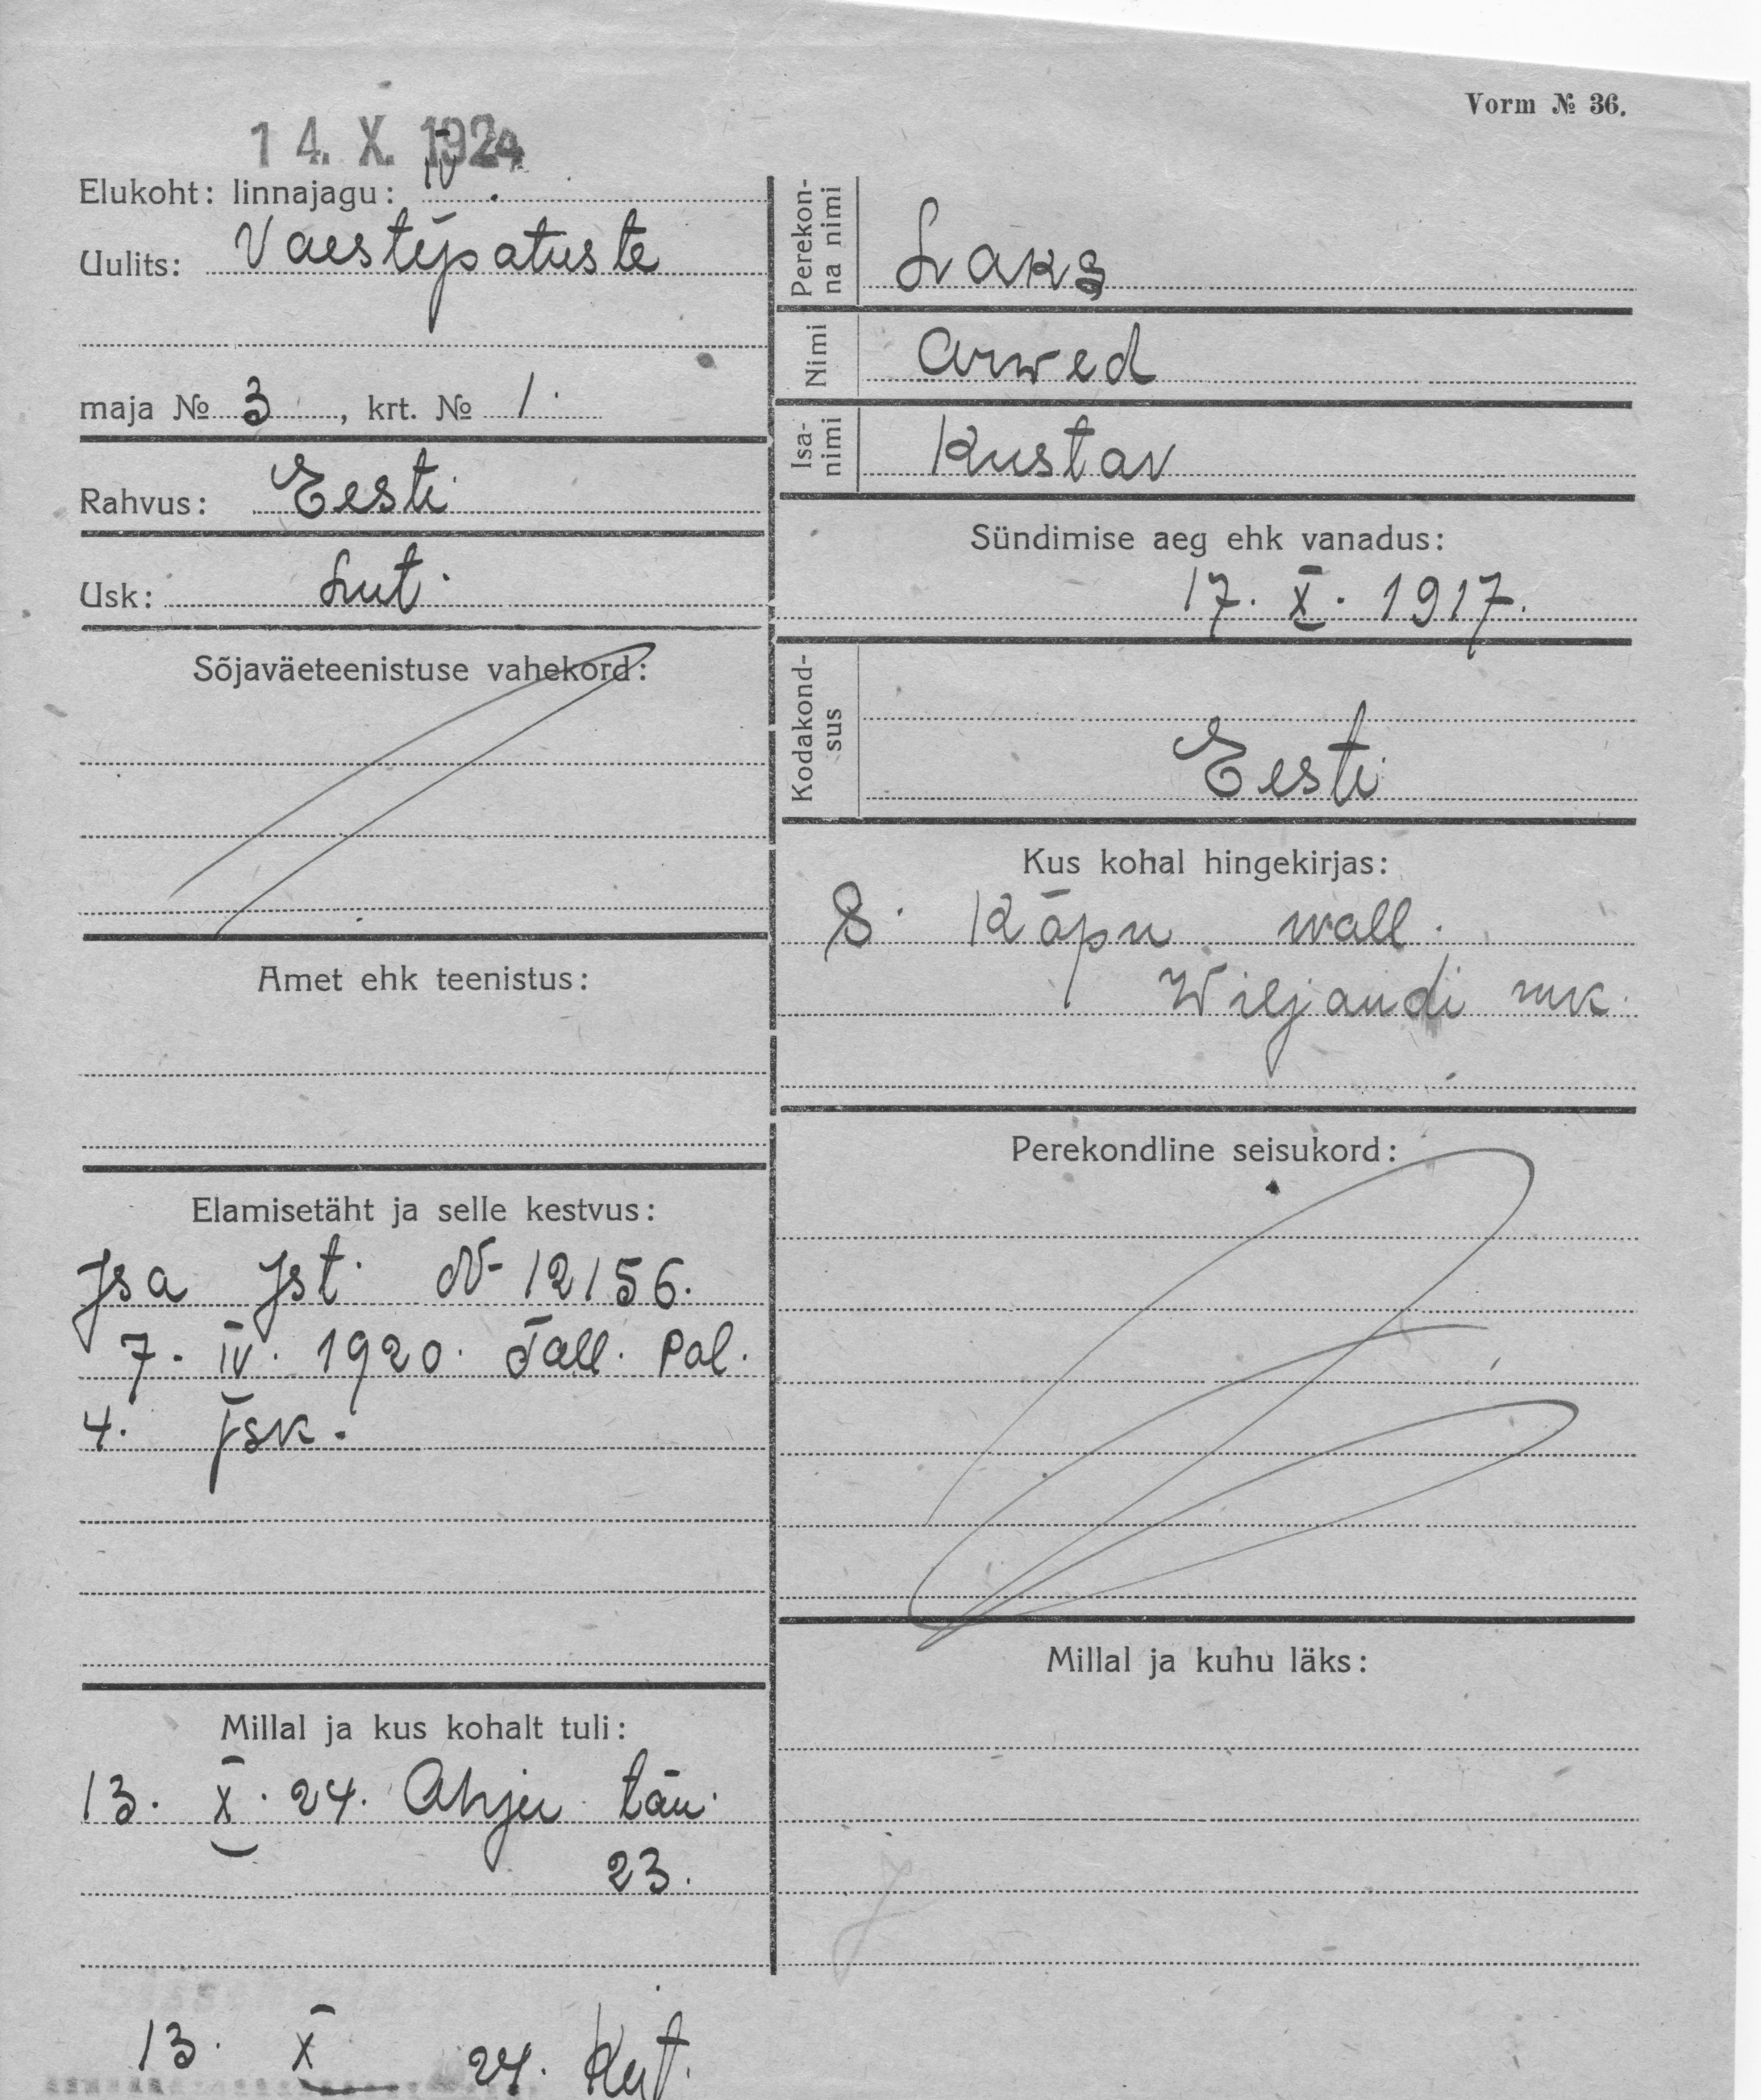 Vorm № 36.
14. X. 1924
Elukoht: linnajagu: IV.
Uulits: Vaestepatuste
maja № 3, krt. № 1.
Rahvus: Eesti
Usk: Lut.
Sõjaväeteenistuse vahekord:
Amet ehk teenistus:
Elamisetäht ja selle kestvus:
Isa Ist. N- 12156.
7. IV. 1920. Tall. Pol.
4. Jsk.
Millal ja kus kohalt tuli:
13. X. 24. Ahju tän.
23.
13. X 24.
Perekon-
na nimi Laks
Nimi Arwed
Isa-
nimi Kustav
Sündimise aeg ehk vanadus:
17. X. 1917.
Kodakond-
sus
Eesti
Kus kohal hingekirjas:
S. Kõpu wall.
Wiljandi mk.
Perekondline seisukord:
Millal ja kuhu läks: